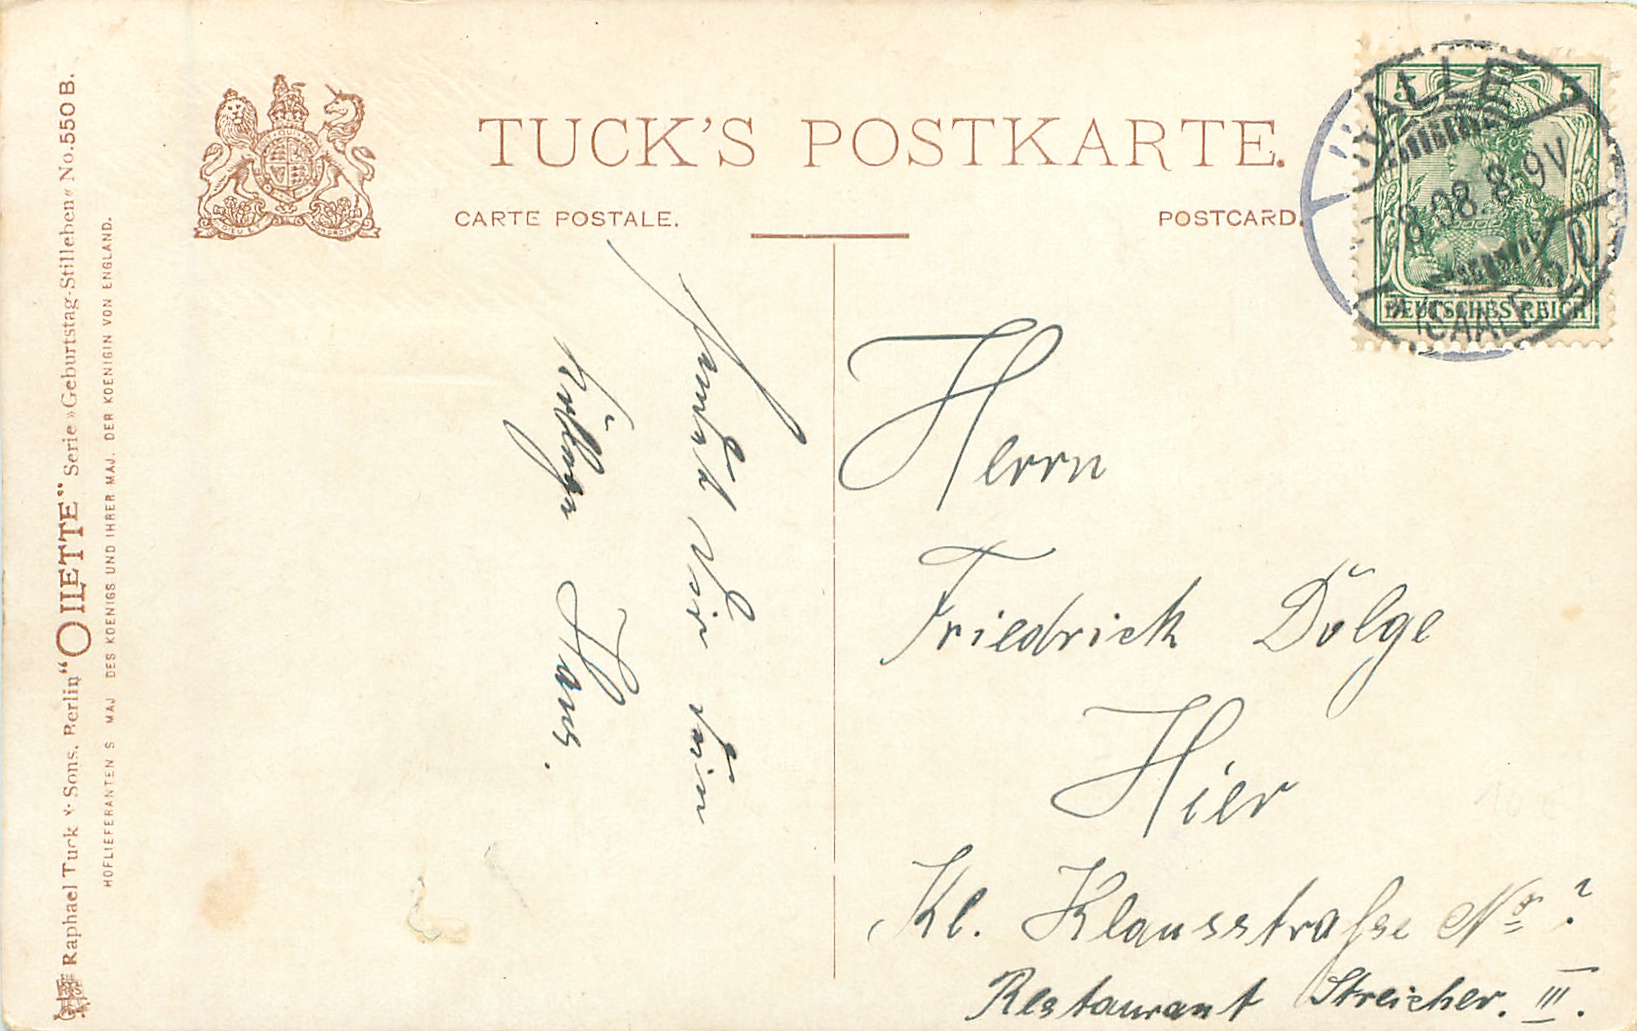 TUCK'S POSTKARTE.
CARTE POSTALE.
POSTCARD.
Raphael Tuck & Sons. Berlin "OILETTE" Serie »Geburtstag-Stilleben« No. 550 B.
HOFLIEFERANTEN S MAJ DES KOENIGS UND IHRER MAJ. DER KOENIGIN VON ENGLAND.
DEUTSCHES REICH
5 5
HALLE
8.08. 8-9V.
(SAALE)
Herrn
Friedrich Dölge
Hier
Kl. Klausstraße No ?
Restaurant Streicher. III.
Dir
Hans.